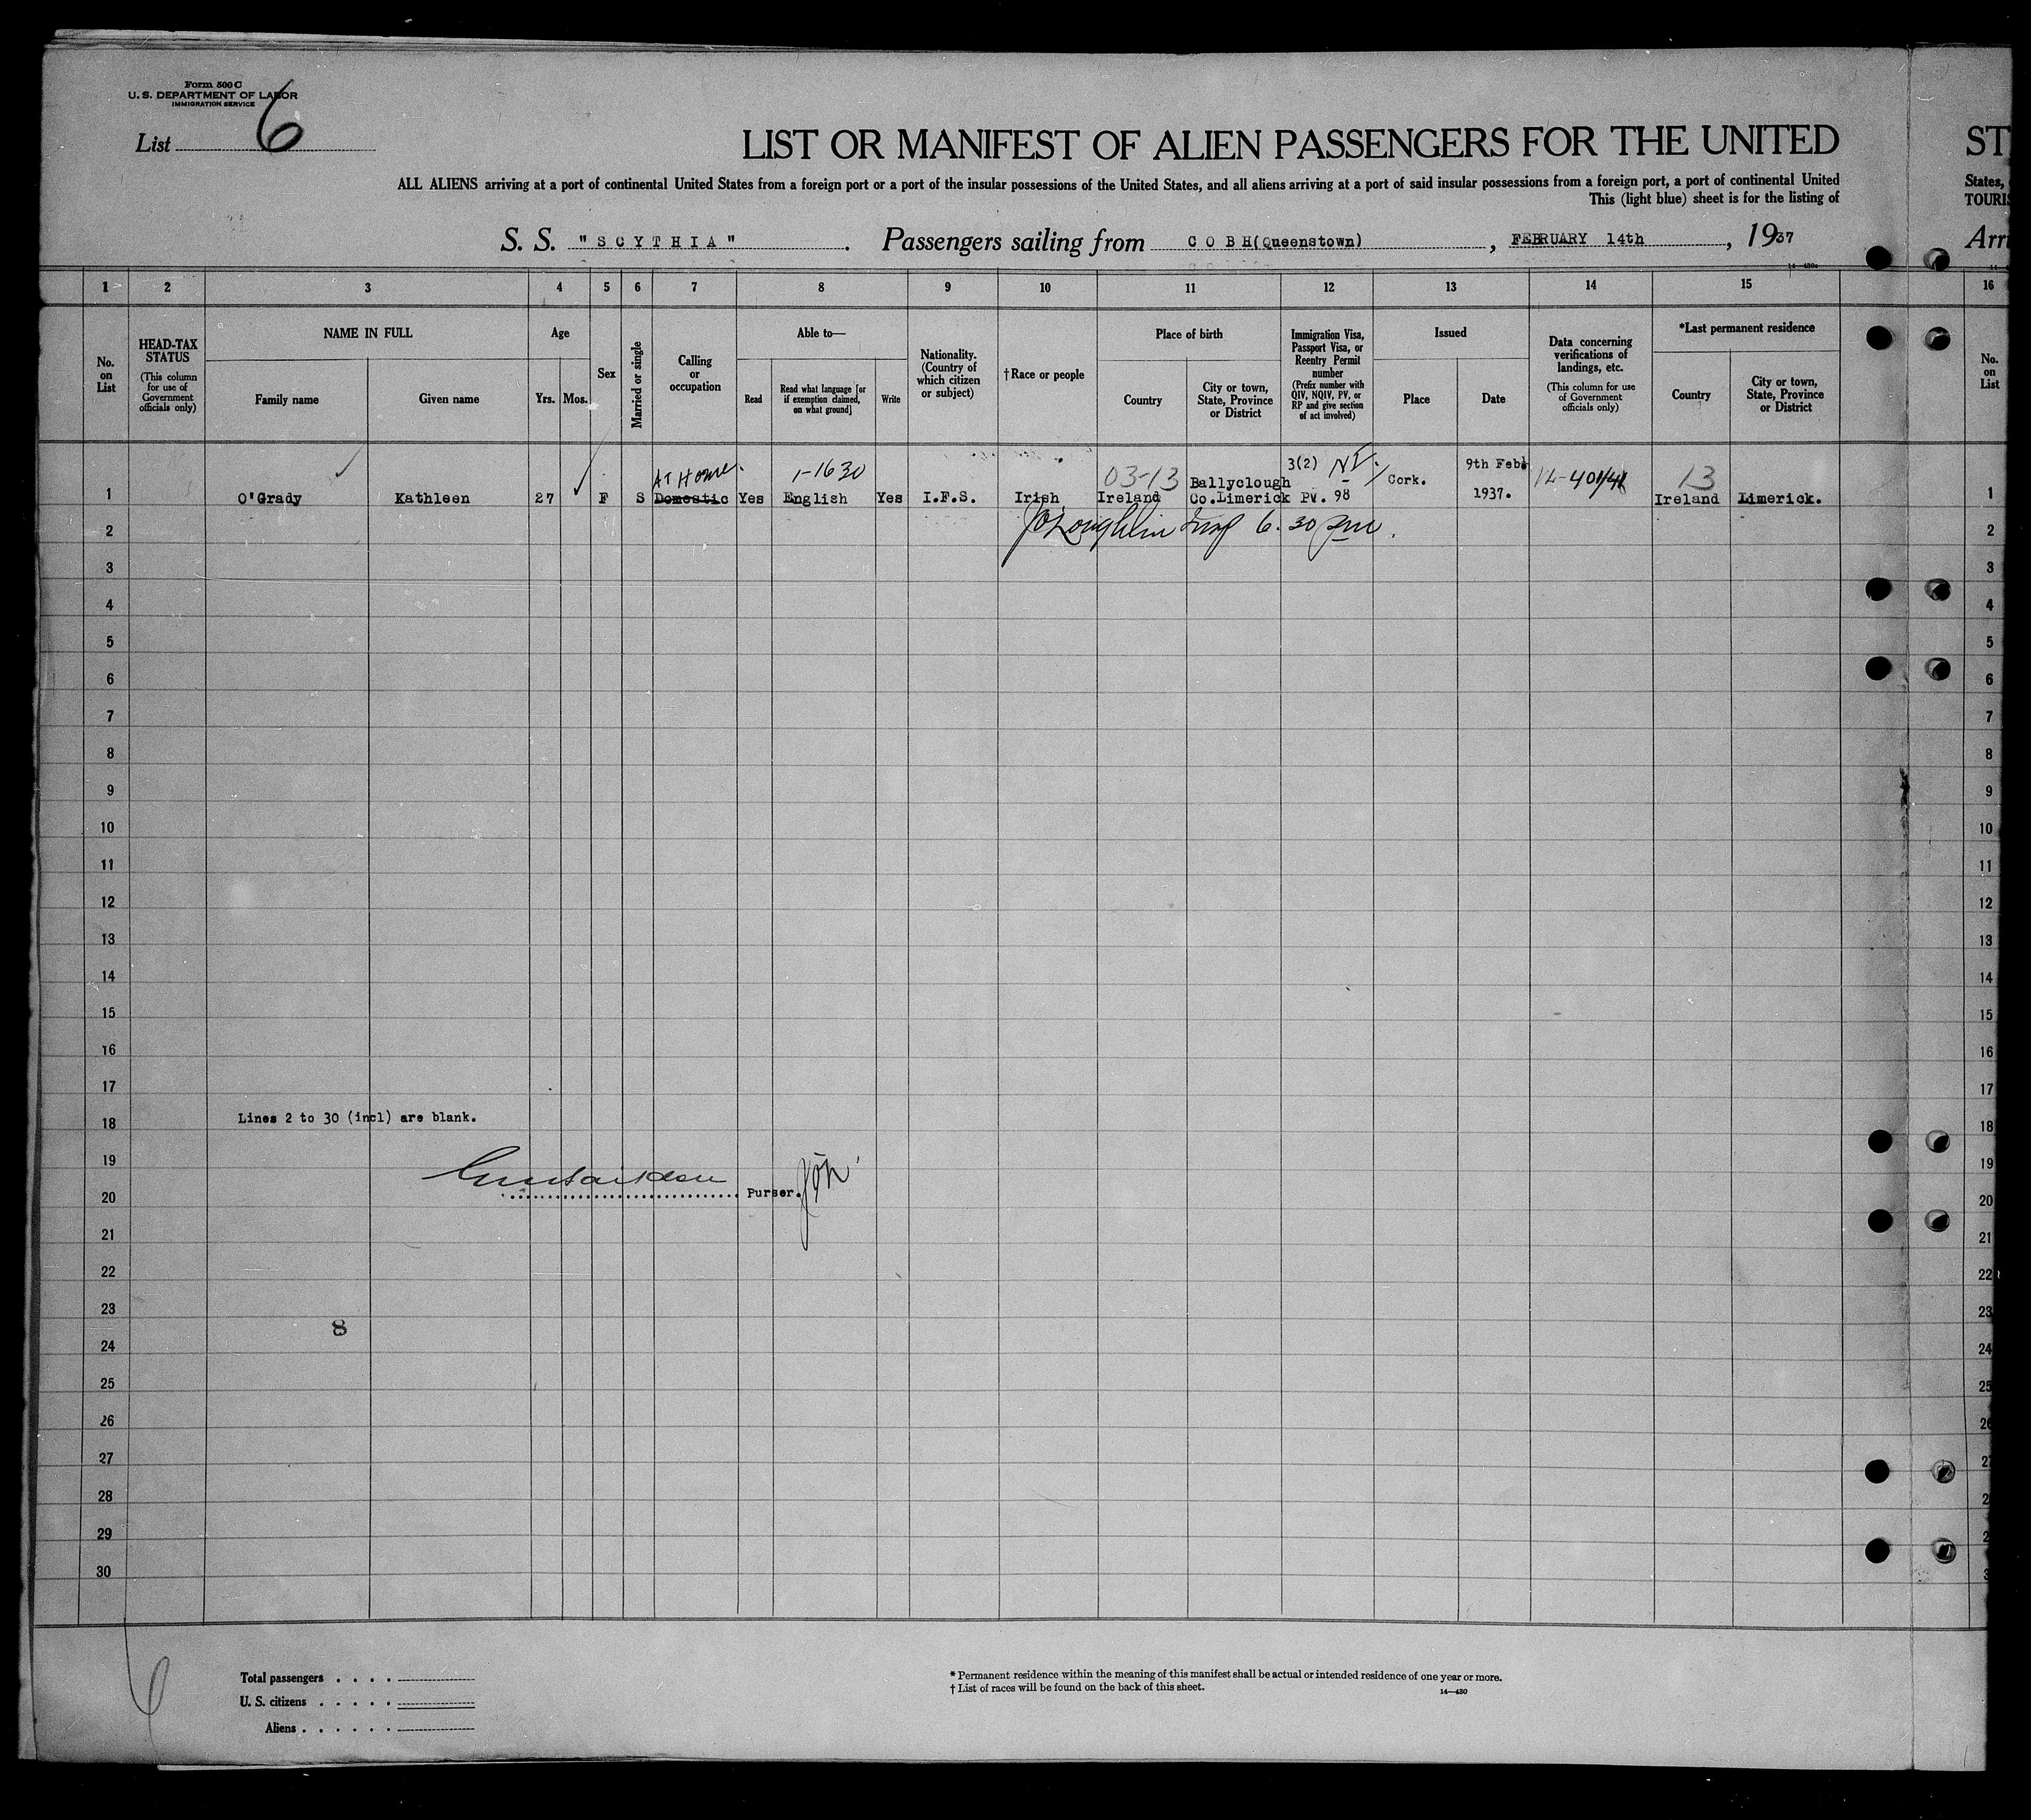 Form 500 C
U. S. DEPARTMENT OF LABOR
IMMIGRATION SERVICE
List 6
LIST OR MANIFEST OF ALIEN PASSENGERS FOR THE UNITED
ST
ALL ALIENS arriving at a port of continental United States from a foreign port or a port of the insular possessions of the United States, and all aliens arriving at a port of said insular possessions from a foreign port, a port of continental United
States,
This (light blue) sheet is for the listing of
TOURIS
S. S. "SCYTHIA". Passengers sailing from COBH(Queenstown), FEBRUARY 14th, 1937
Arri
1 2 3 4 5 6 7 8 9 10 11 12 13 14 15 16
No. on List
HEAD-TAX STATUS
(This column for use of Government officials only)
NAME IN FULL
Family name
Given name
Age
Yrs.
Mos.
Sex
Married or single
Calling or occupation
Able to—
Read
Read what language [or if exemption claimed, on what ground]
Write
Nationality. (Country of which citizen or subject)
†Race or people
Place of birth
Country
City or town, State, Province or District
Immigration Visa, Passport Visa, or Reentry Permit number
(Prefix number with QIV, NQIV, PV, or RP and give section of act involved)
Issued
Place
Date
Data concerning verifications of landings, etc.
(This column for use of Government officials only)
*Last permanent residence
Country
City or town, State, Province or District
No. on List
AT Home. 1-1630 03-13 3(2) NI. 9th Feb 13
1 O'Grady Kathleen 27 F S Domestic Yes English Yes I.F.S. Irish Ireland Ballyclough Co.Limerick PV. 98 Cork. 1937. Ireland Limerick. 1
2 JO'Loughlin Insp 6.30 pm. 2
3 3
4 4
5 5
6 6
7 7
8 8
9 9
10 10
11 11
12 12
13 13
14 14
15 15
16 16
17 17
Lines 2 to 30 (incl) are blank.
18 18
19 19
20 Purser. 20
21 21
22 22
23 23
8
24 24
25 25
26 26
27 27
28 2
29 2
30 3
Total passengers
U. S. citizens
Aliens
* Permanent residence within the meaning of this manifest shall be actual or intended residence of one year or more.
† List of races will be found on the back of this sheet.
14—430